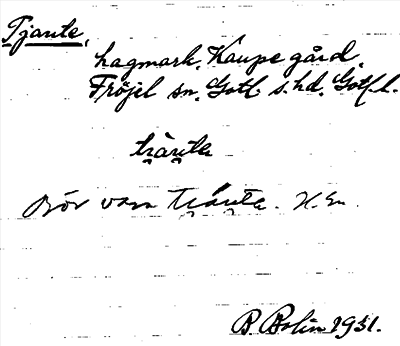 Tjaute,
hagmark, Kaupe gård.
Fröjel sn. Gotl. s. hd. Gotl. l.
Bör vara
H. Gn.
B. Bolin 1931.